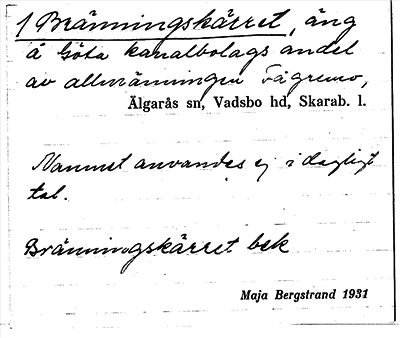 1 Bränningskärret, äng
å Göta kanalbolags andel
av allmänningen Fägremo,
Älgarås sn, Vadsbo hd, Skarab. l.
Namnet användes ej i dagligt
tal.
Bränningskärret bsk
Maja Bergstrand 1931